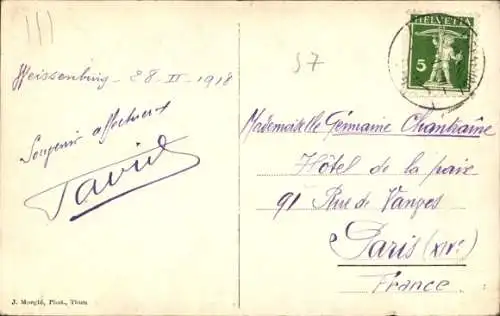 Weissenburg - 28 - II - 1918
Souvenir affectueux
J. Morglé, Phot., Thun
57
HELVETIA
5
Mademoiselle Germaine Chantraîne
Hôtel de la paix
91 Rue de Vanves
Paris (XIVe)
France